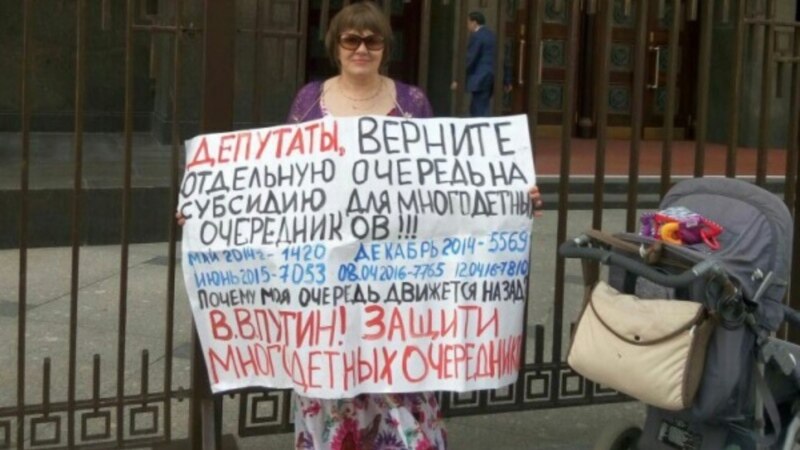 ДЕПУТАТЫ, ВЕРНИТЕ
ОТДЕЛЬНУЮ ОЧЕРЕДЬ НА
СУБСИДИЮ ДЛЯ МНОГОДЕТНЫ
ОЧЕРЕДНИКОВ!!!
МАЙ 2014г.-1420 ДЕКАБРЬ 2014-5569
ИЮНЬ 2015-7053 08.04.2016-7765 12.04.16-7810
ПОЧЕМУ МОЯ ОЧЕРЕДЬ ДВИЖЕТСЯ НАЗАД?
В.В.ПУТИН! ЗАЩИТИ
МНОГОДЕТНЫХ ОЧЕРЕДНИКО